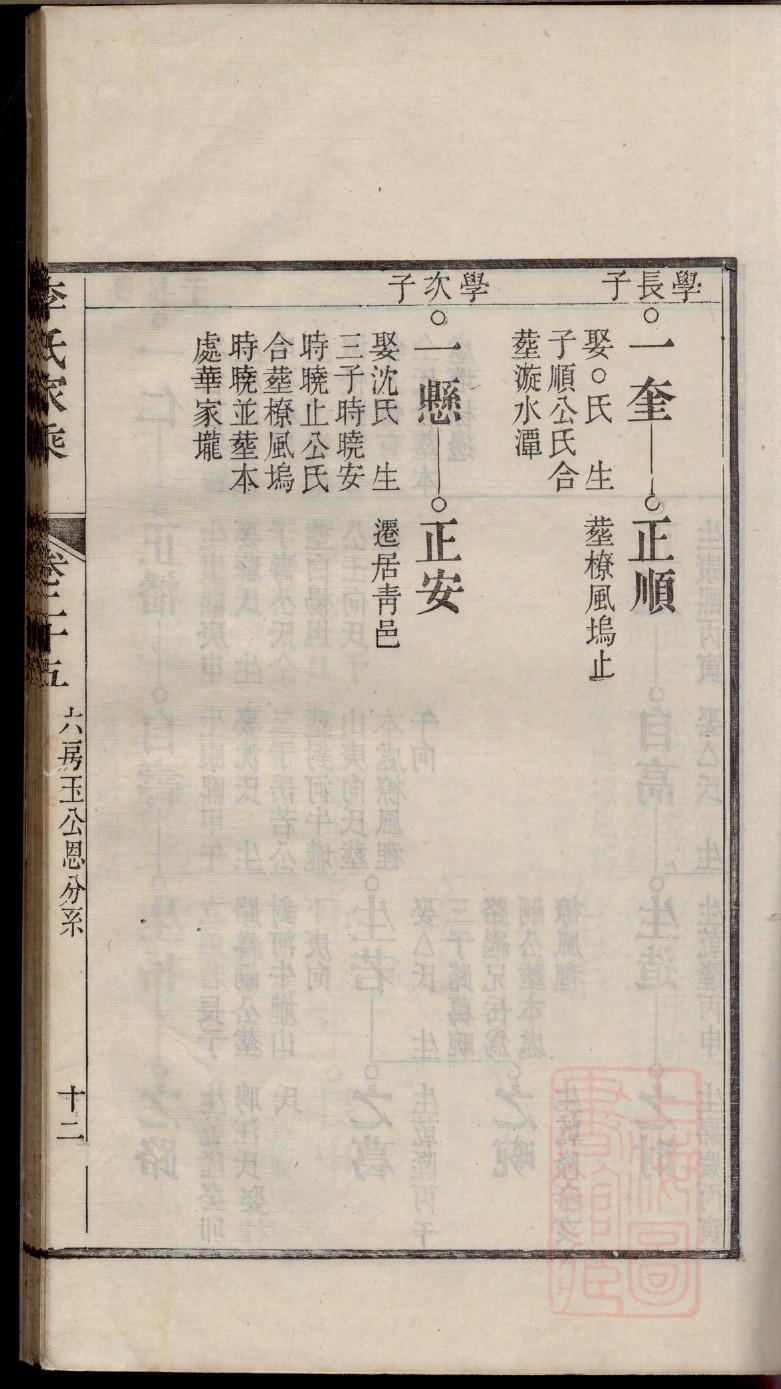 學長子
一奎
正順
娶○氏 生
子順公氏合
塟漩水潭
塟橑風塢止
學次子
一懸
正安
娶沈氏 生
三子時曉安
時曉止公氏
合塟橑風塢
時曉並塟本
處華家壠
遷居靑邑
李氏家乘
卷二十五
六房玉公恩分系
十二